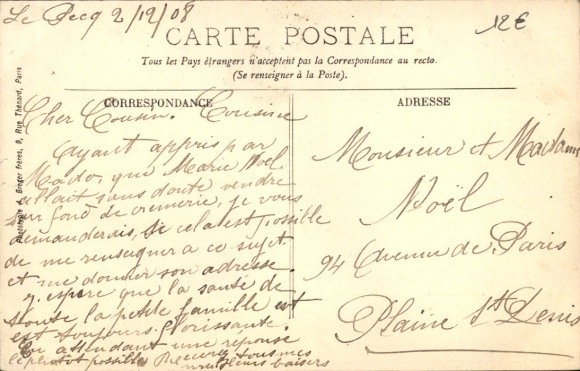 Le Pecq 2/12/08
12€
CARTE POSTALE
Tous les Pays étrangers n'acceptent pas la Correspondance au recto.
(Se renseigner à la Poste).
CORRESPONDANCE
Cher Cousin. Cousine
Ayant appris par
Mado, que Marie Noel
allait sans doute vendre
son fond de cremerie, je vous
demanderais, si cela est possible
de me renseigner a ce sujet.
et me donner son adresse.
J. espere que la santé de
toute la petite famille est
est toujours florissante.
En attendant une reponse
le plutot possible Recevez tous mes
meilleurs baisers
ADRESSE
Monsieur et Madame
Noël
94 Avenue de Paris
Plaine St Denis
A. Breger frères, 9, Rue Thénard, Paris